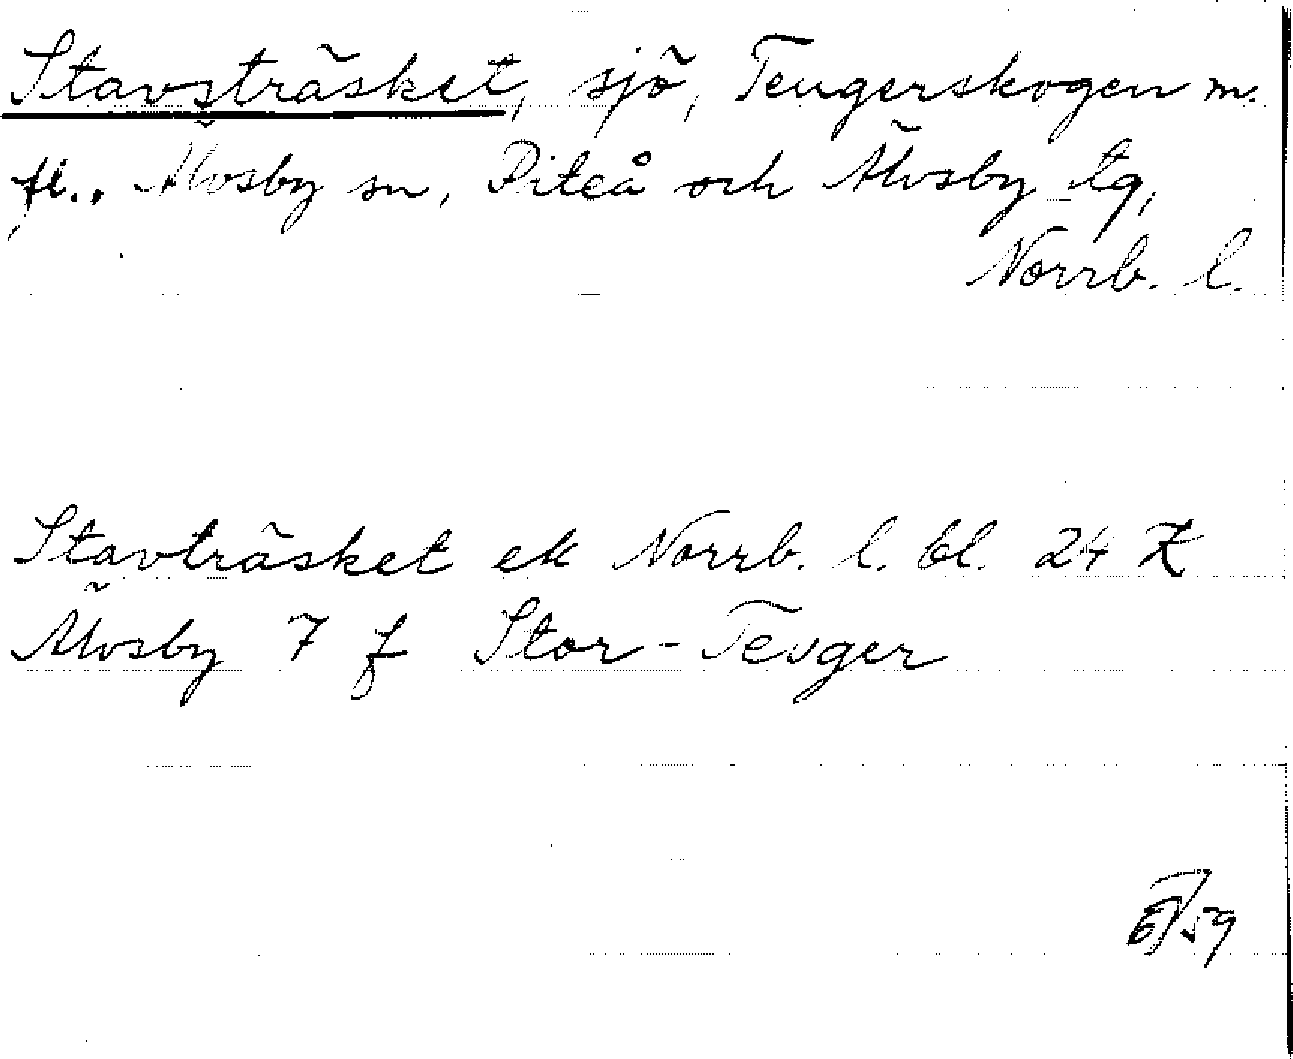 Stavsträsket, sjö, Teugerskogen m.
fl., Älvsby sn, Piteå och Älvsby tg,
Norrb. l.
Stavträsket ek Norrb. l. bl. 24
Älvsby 7 f Stor-Teuger
/59